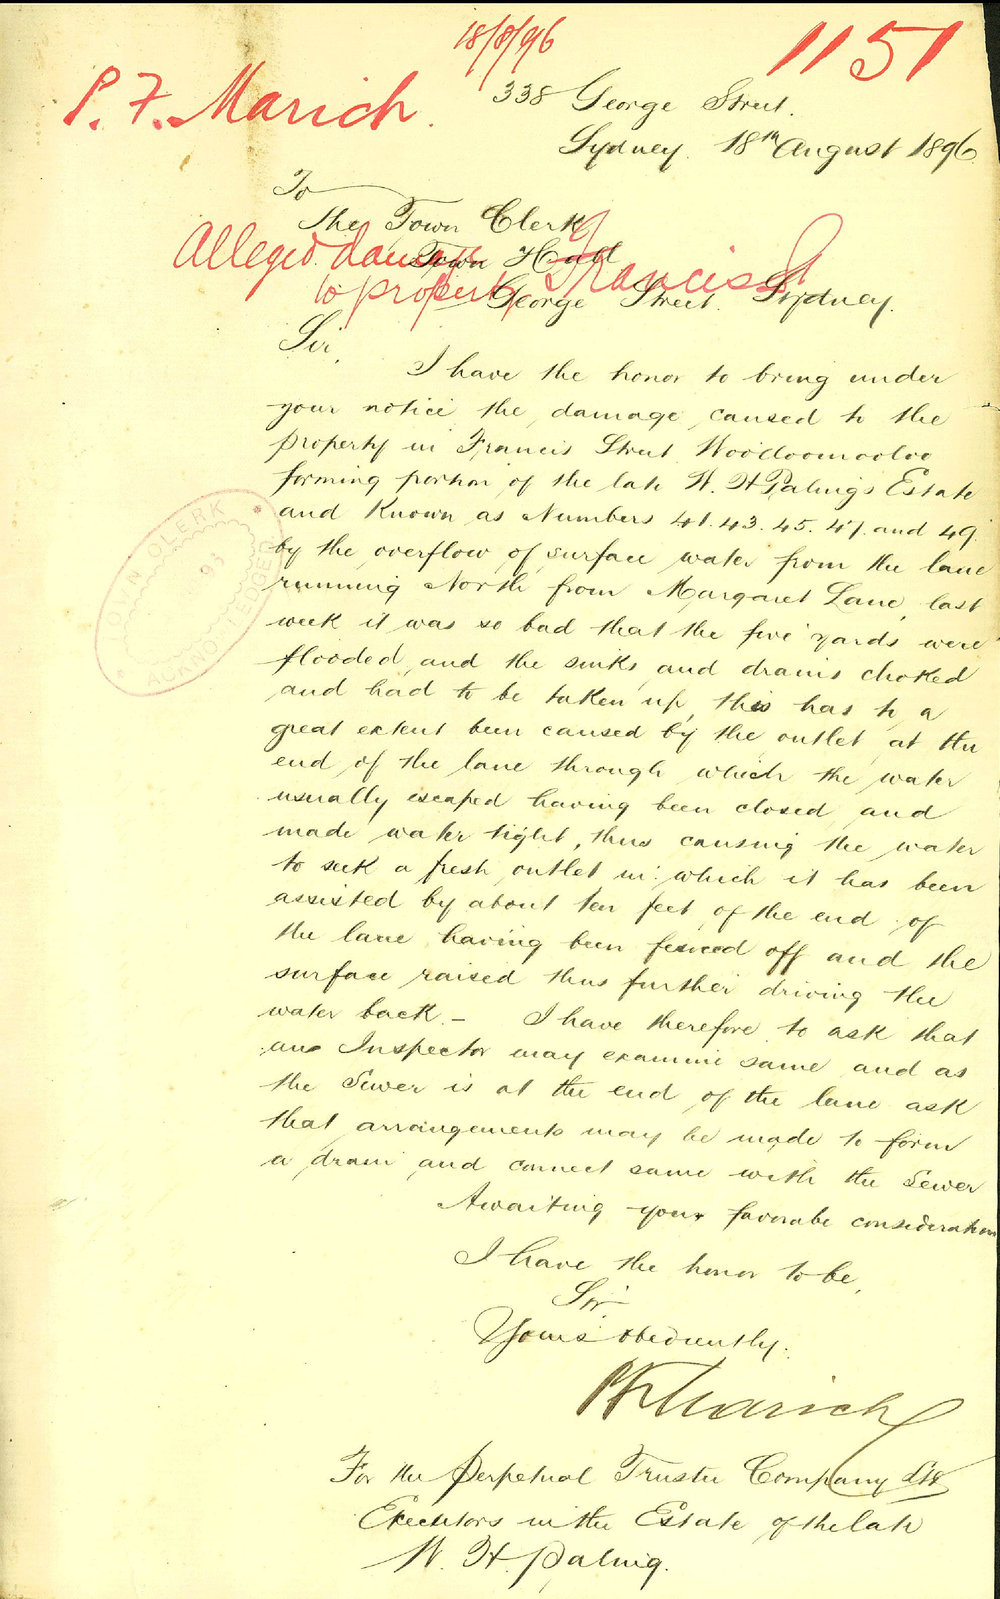 18/8/96
1151
P. F. Marich.
338 George Street.
Sydney. 18th August 1896
To
The Town Clerk
Town Hall
George Street. Sydney.
Alleged damage
to property Francis St
Sir,
I have the honor to bring under
your notice the damage caused to the
property in Francis Street Woolloomooloo
forming portion of the late W. H Paling's Estate
and Known as Numbers 41. 43. 45. 47. and 49.
by the overflow of surface water from the lane
running North from Margaret Lane, last
week it was so bad that the five yards were
flooded and the sinks and drains choked
and had to be taken up, this has to a
great extent been caused by the outlet at the
end of the lane through which the water
usually escaped having been closed and
made water tight, thus causing the water
to seek a fresh outlet in which it has been
assisted by about ten feet of the end of
the lane having been fenced off and the
surface raised thus further driving the
water back. — I have therefore to ask that
an Inspector may examine same and as
the Sewer is at the end of the lane ask
that arrangements may be made to form
a drain and connect same with the Sewer
Awaiting your favorabe consideration
I have the honor to be,
Sir
Yours obediently.
P F Marich
For the Perpetual Trustee Company Ltd
Executors in the Estate of the late
W. H. Paling.
TOWN CLERK
93
ACKNOWLEDGED